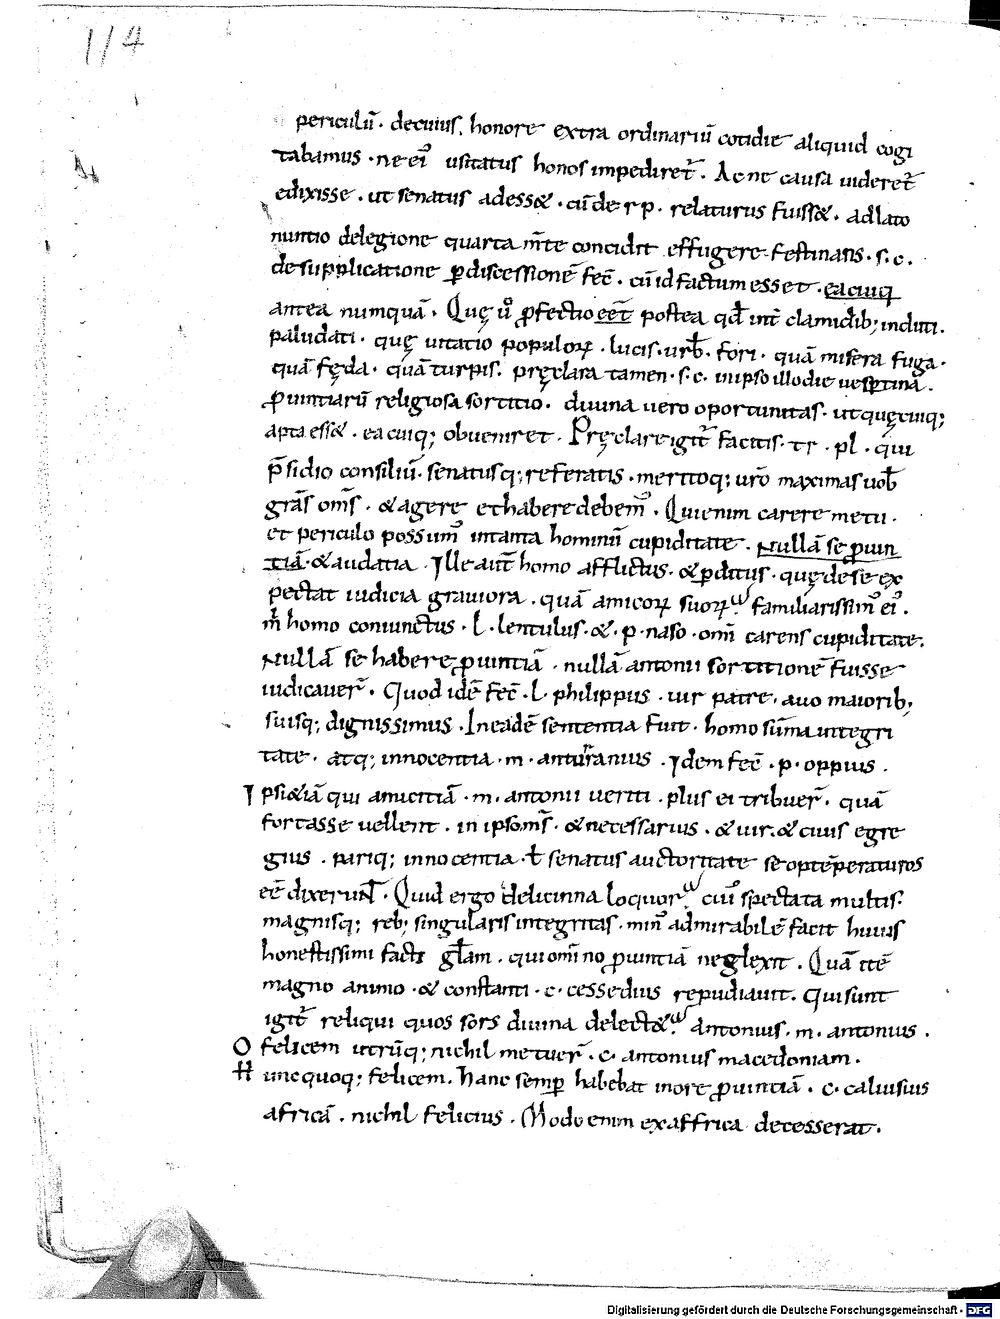 114
periculū · decuius, honore extra ordinariū cotidie aliquid cogi
tabamus · ne ei᾽ usitatus honos impediret᷑ . Ac ne causa uideret᷑
edixisse . ut senatus adess& . cū de r p . relaturus fuiss& . adlato
nuntio delegione quarta m̄te concidit effugere festinans . s. c .
desupplicatione ꝑdiscessionē fec̄ . cū id factum esset . ea cuiq
antea numquā . Quę ū ꝓfectio eēt postea qđ int̄ clamidib; induti .
paludati . quę uitatio populoꝝ . lucis . urb̄ . fori . quā misera fuga .
quā fęda . quā turpis . pręclara tamen . s. c . inipso illo die uesꝑtina .
ꝓuintiarū religiosa sortitio . diuina uero oportunitas . ut quęcuiq;
apta ess& . ea cuiq; obueniret . Pręclare igit᷑ facitis . tr . pl . qui
p̄sidio consiliū . senatusq; referatis . meritoq; ur̄o maximas uob̄
gr̄as om̄s . & agere et habere debem᾽ . Qui enim carere metu .
et periculo possum᾽ intanta hominū cupiditate . Nullā se ꝓuin
tiā . & audatia . Ille aut̄ homo afflictus . & ꝑditus . quę de se ex
pectat iudicia grauiora . quā amicoꝝ suoꝝ familiarissim᾽ ei᾽ .
m̄ homo coniunctus . L . lentulus . & . p . naso . om̄i carens cupiditate .
Nullā se habere ꝓuintiā . nullā antonii sortitionē fuisse
iudicauer̄ . Quod idē fec̄ . L . philippus . uir patre . auo maiorib;
suisq; dignissimus . In eadē sententia fuit . homo sūma integri
tate . atq; innocentia . m . anturranius . Idem fec̄ . p . oppius .
Ipsi &iā qui amicitiā . m . antonii ueriti . plus ei tribuer̄ . quā
fortasse uellent . in ipso m̄s . & necessarius . & uir . & ciuis egre
gius . pariq; innocentia . ł senatus auctoritate se optēperaturos
eē dixerunt . Quid ergo delicinna loquor cui᾽ spectata multis .
magnisq; reb; singularis integritas . min᾽ admirabilē facit huius
honestissimi facti głam . qui omnino ꝓuintiā neglexit . Quā itē
magno animo . & constanti . c . cessedius repudiauit . Qui sunt
igit᷑ reliqui quos sors diuina delect& antonius . m . antonius .
O felicem utrūq; nichil metuer̄ . c . antonius macedoniam .
Hunc quoq; felicem . hanc semꝑ habebat in ore ꝓuintiā . c . caluisius
africā . nichil felicius . Modo enim ex affrica decesserat .
Digitalisierung gefördert durch die Deutsche Forschungsgemeinschaft - DFG